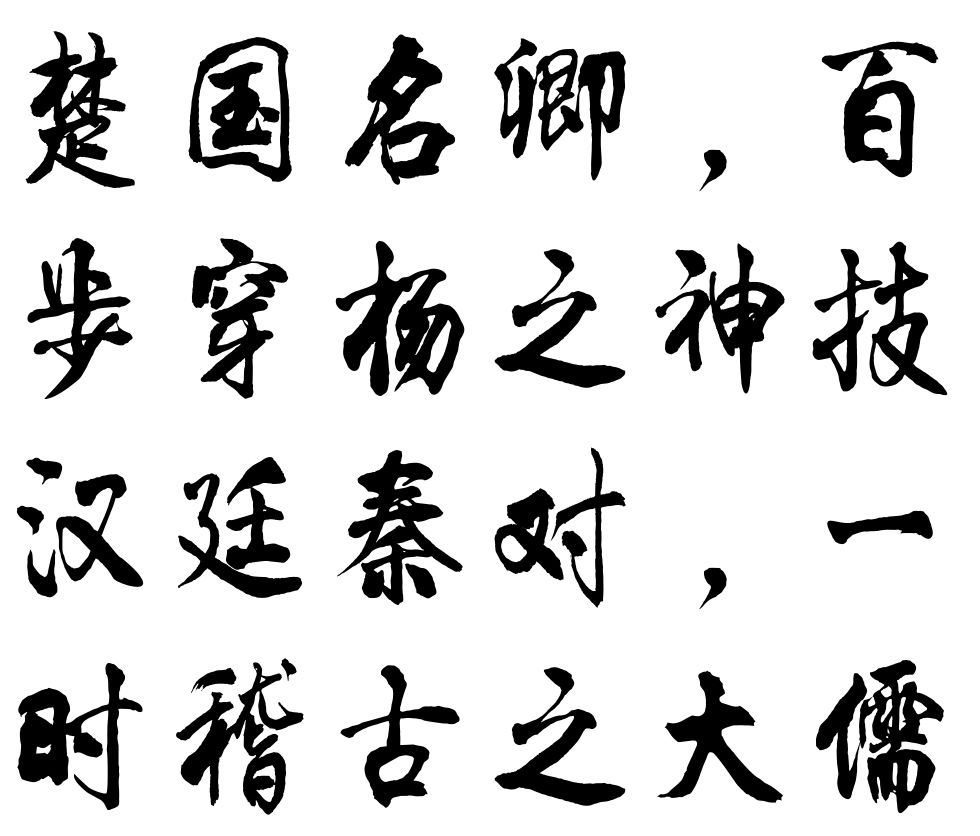 楚国名卿，百
步穿杨之神技
汉廷秦对，一
时稽古之大儒